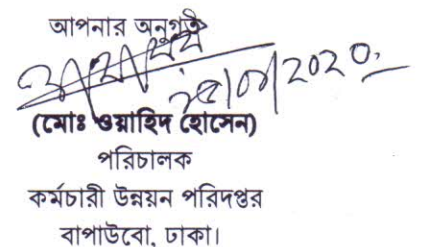 আপনার অনুগত
(মোঃ ওয়াহিদ হোসেন)
পরিচালক
কর্মচারী উন্নয়ন পরিদপ্তর
বাপাউবো, ঢাকা।